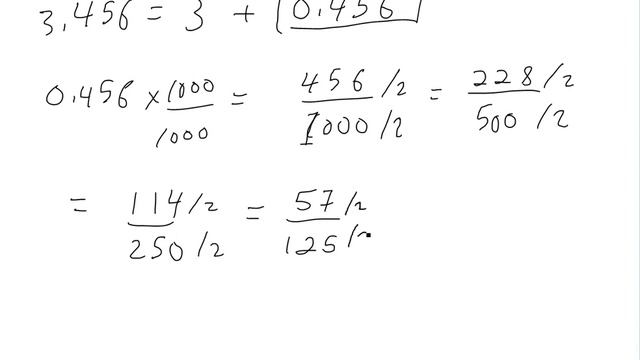 3.456 = 3 + 0.456
0.456 × 1000/1000 = 456/2 / 1000/2 = 228/2 / 500/2
= 114/2 / 250/2 = 57/2 / 125/2